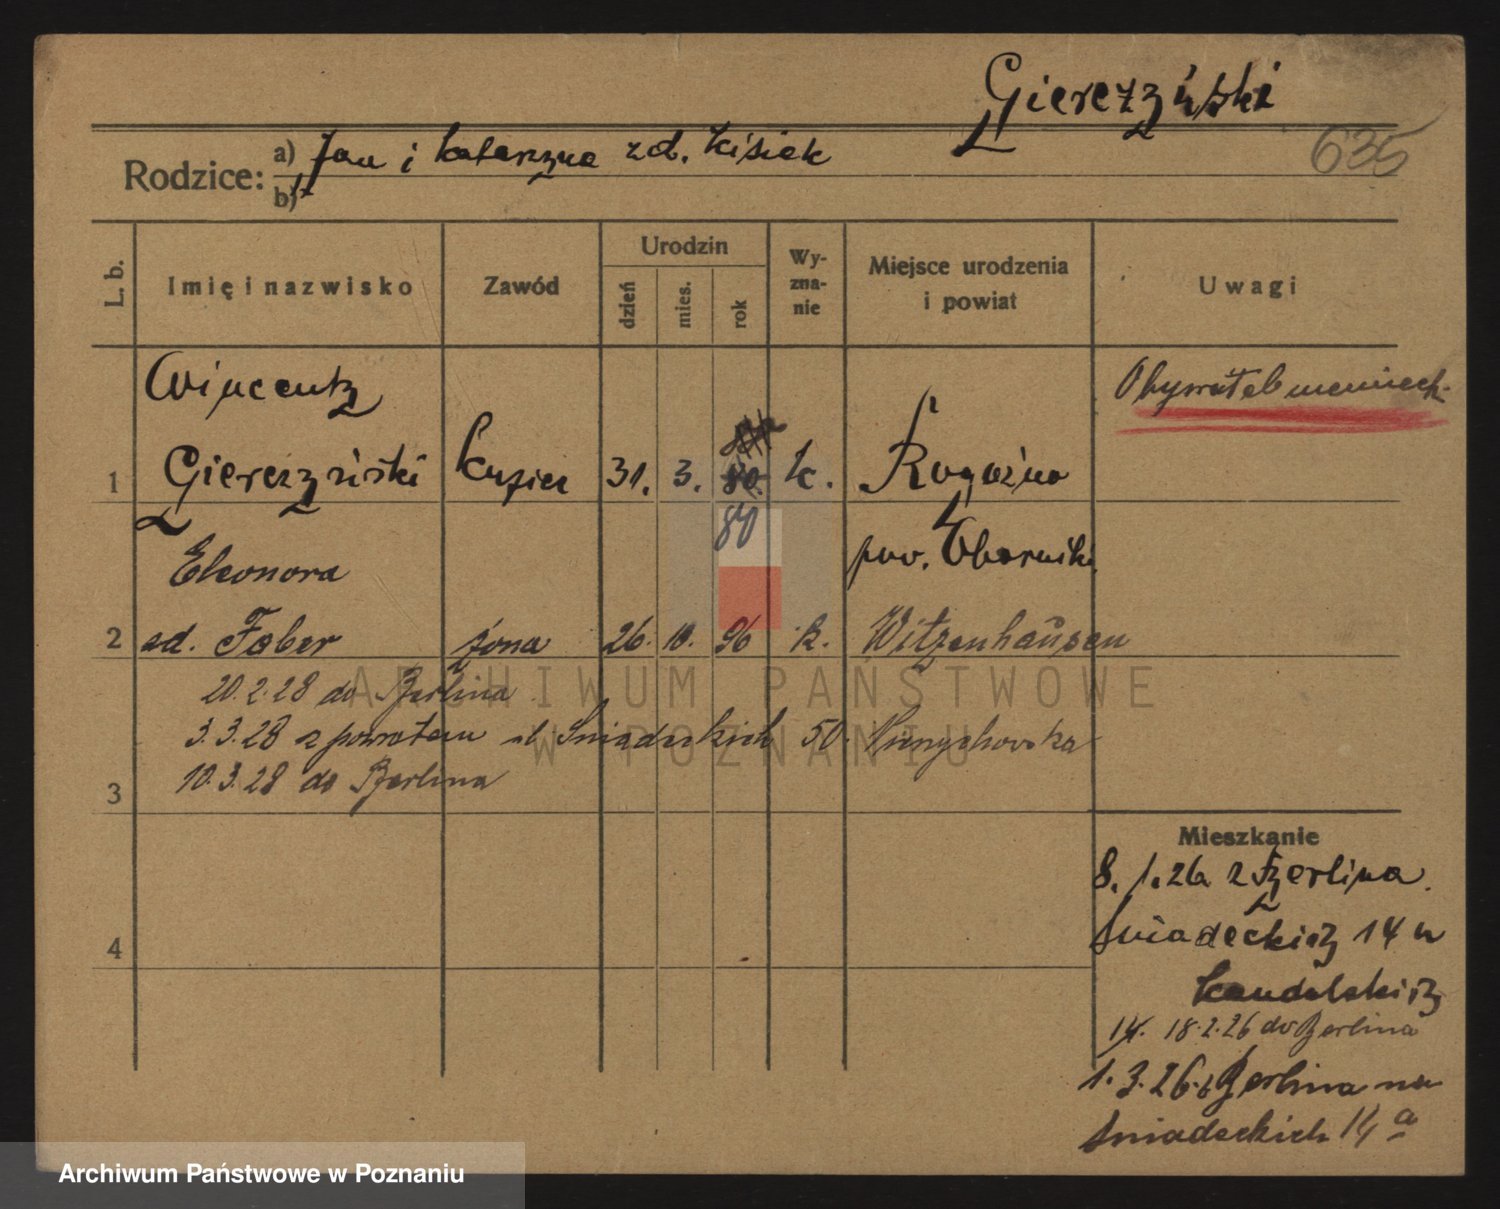 Gierczyński
635
Rodzice:
a) Jan i Katarzyna zd. Kisiek
b)
L. b.
Imię i nazwisko
Zawód
Urodzin
dzień
mies.
rok
Wy-
zna-
nie
Miejsce urodzenia
i powiat
Uwagi
Wincenty
Obywatel niemieck.
1 Gierczyński kupiec 31. 3. 80. k. Rogoźno
80
Eleonora pow. Oborniki
2 zd. Faber żona 26. 10. 96 k. Witzenhausen
20.2.28 do Berlina
3.3.28 z powrotem ul. Śniadeckich 50.
10.3.28 do Berlina
3
4
Mieszkanie
8. 1. 26 z Berlina.
Śniadeckich 14 u
14. 18.2.26 do Berlina
1. 3. 26. z Berlina na
Śniadeckich 14 a
ARCHIWUM PAŃSTWOWE
W POZNANIU
Archiwum Państwowe w Poznaniu